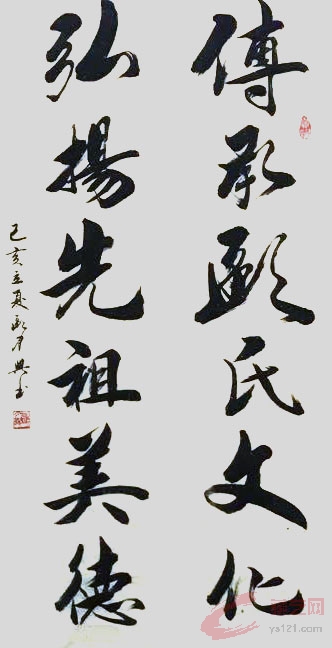 傳承氏文化
弘揚先祖美德
己亥立夏才興书
ys121.com